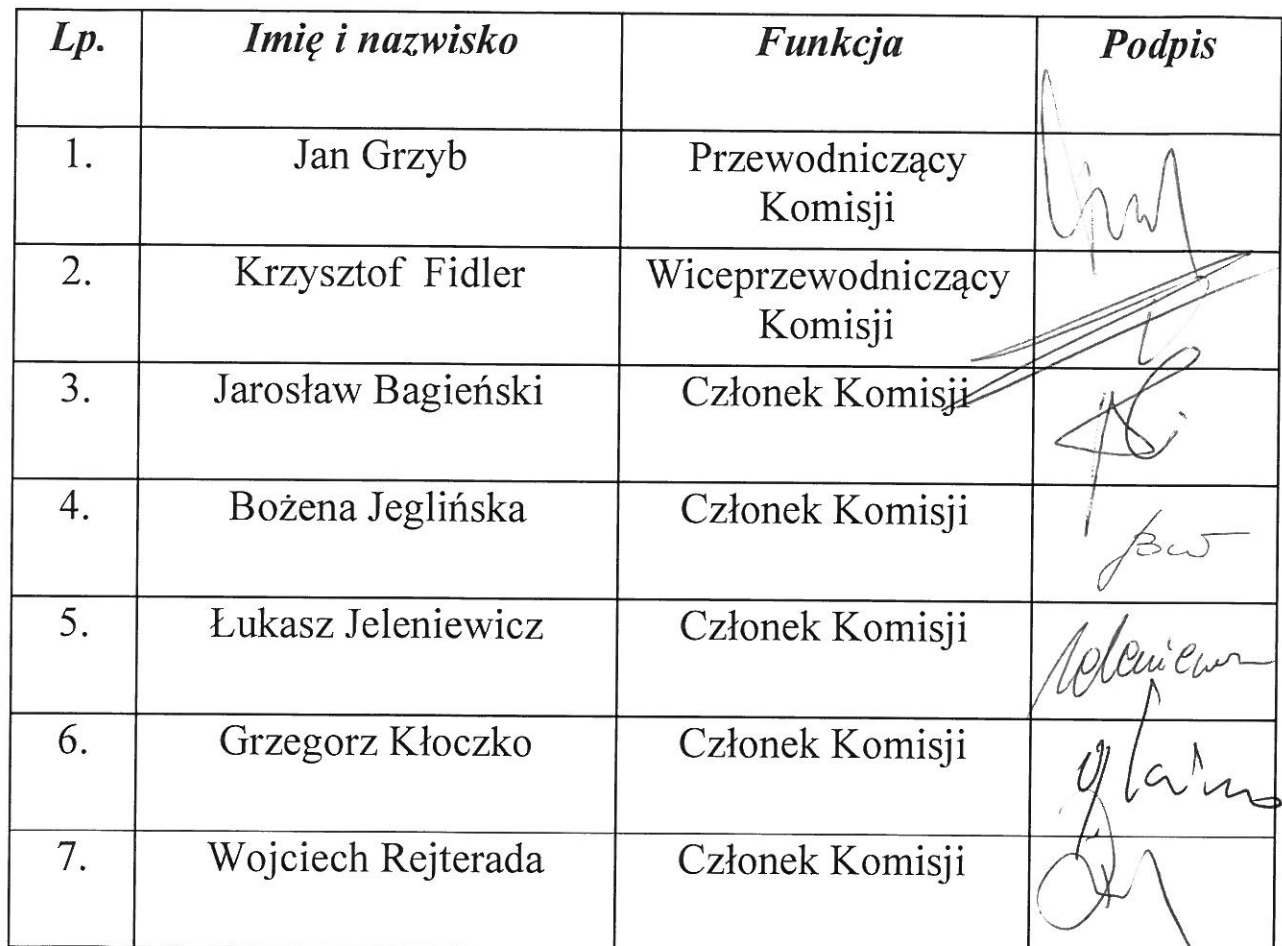 Lp. Imię i nazwisko Funkcja Podpis
1. Jan Grzyb Przewodniczący
Komisji
2. Krzysztof Fidler Wiceprzewodniczący
Komisji
3. Jarosław Bagieński Członek Komisji
4. Bożena Jeglińska Członek Komisji
5. Łukasz Jeleniewicz Członek Komisji
6. Grzegorz Kłoczko Członek Komisji
7. Wojciech Rejterada Członek Komisji